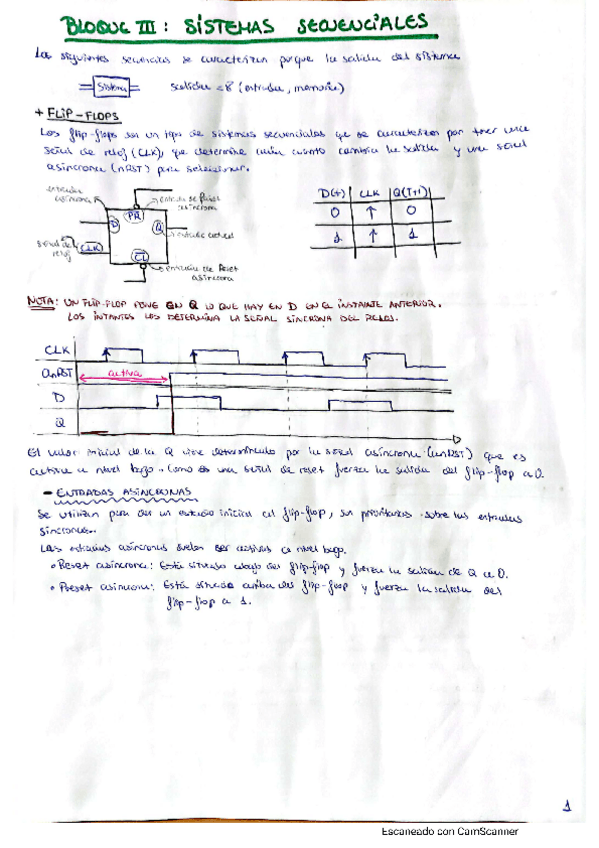 BLOQUE III: SISTEMAS SECUENCIALES
Los siguientes secuencias se caracterizan porque la salida del sistema
Sistema salida = f (entrada, memoria)
+ FLIP-FLOPS
Los flip-flops son un tipo de sistemas secuenciales que se caracterizan por tener una
señal de reloj (CLK), que determina cuánto cambia la salida y una señal
asíncrona (nRST) para
entrada asíncrona
entrada de Preset asíncrona
PR
D
Q
entrada actual
señal de reloj
CLK
CL
entrada de Reset asíncrona
D(t) CLK Q(T+1)
0 ↑ 0
1 ↑ 1
NOTA: UN FLIP-FLOP PONE EN Q LO QUE HAY EN D EN EL INSTANTE ANTERIOR.
LOS INTANTES LOS DETERMINA LA SEÑAL SINCRONA DEL RELOJ.
CLK
nRST activa
D
Q
El valor inicial de la Q viene determinado por la señal asíncrona (nRST) que es
activa a nivel bajo. Como es una señal de reset fuerza la salida del flip-flop a 0.
- ENTRADAS ASINCRONAS
Se utilizan para dar un estado inicial al flip-flop, son prioritarias sobre las entradas
síncronas.
Las entradas asíncronas suelen ser activas a nivel bajo.
• Reset asíncrona: Está situada abajo del flip-flop y fuerza la salida de Q a 0.
• Preset asíncrona: Está situada arriba del flip-flop y fuerza la salida del
flip-flop a 1.
1
Escaneado con CamScanner